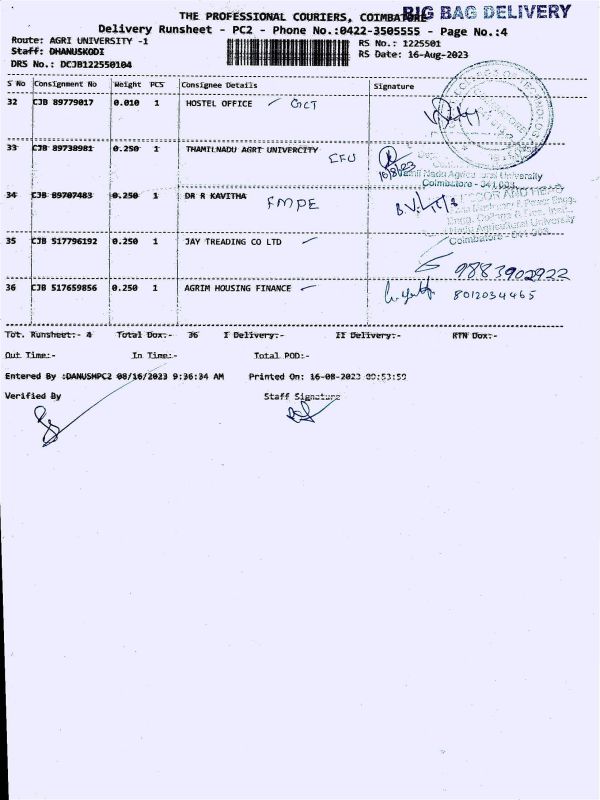 THE PROFESSIONAL COURIERS, COIMBATORE
BIG BAG DELIVERY
Delivery Runsheet - PC2 - Phone No.:0422-3505555 - Page No.:4
Route: AGRI UNIVERSITY -1
RS No.: 1225501
Staff: DHANUSKODI
RS Date: 16-Aug-2023
DRS No.: DCJB122550104
S No Consignment No Weight PCS Consignee Details Signature
32 CJB 89779017 0.010 1 HOSTEL OFFICE GCT
33 CJB 89738981 0.250 1 THAMILNADU AGRI UNIVERCITY CFU
Tamil Nadu Agricultural University
Coimbatore - 641 003
34 CJB 89707483 0.250 1 DR R KAVITHA FMPE
PROFESSOR AND HEAD
Agricultural University
Coimbatore
35 CJB 517796192 0.250 1 JAY TREADING CO LTD
9883902922
36 CJB 517659856 0.250 1 AGRIM HOUSING FINANCE 8012034465
Tot. Runsheet:- 4 Total Dox:- 36 I Delivery:- II Delivery:- RTN Dox:-
Out Time:- In Time:- Total POD:-
Entered By :DANUSHPC2 08/16/2023 9:36:34 AM Printed On: 16-08-2023 09:53:59
Verified By Staff Signature